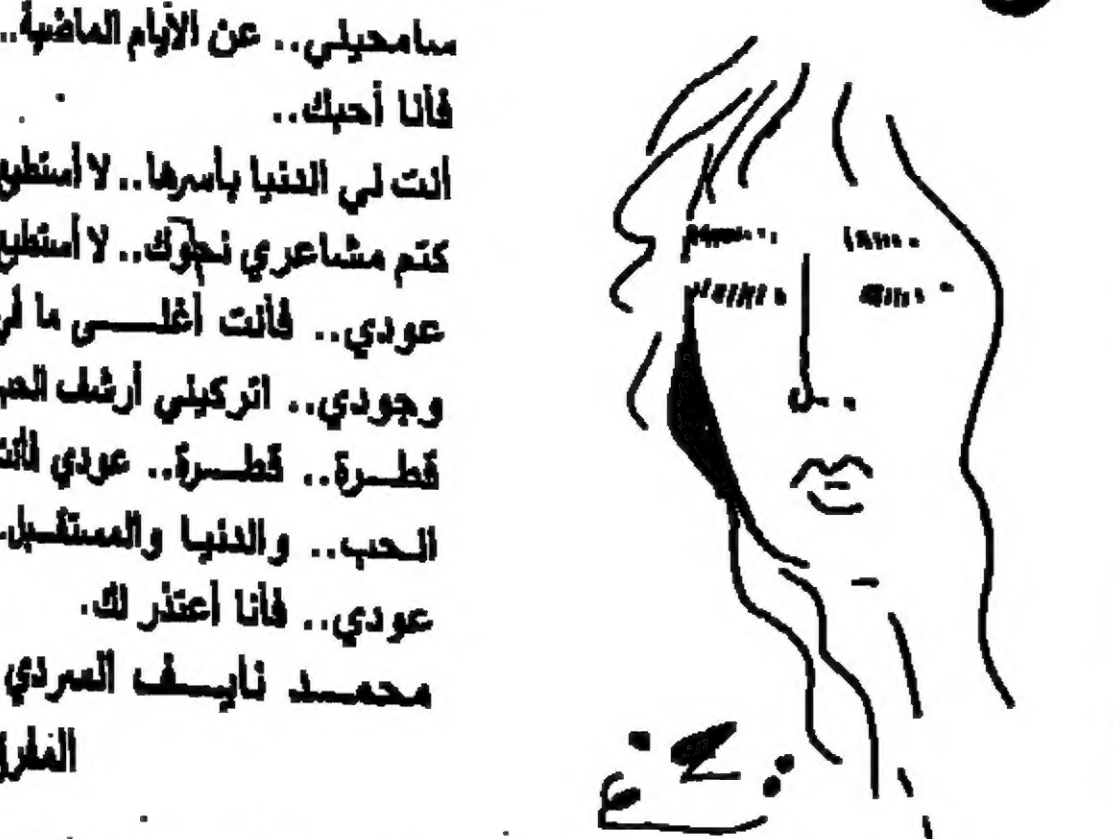 سامحيني.. عن الأيام الماضية..
فأنا أحبك..
أنت لي الدنيا بأسرها.. لا أستطيع
كتم مشاعري نحوك.. لا أستطيع
عودي.. فأنت أغلـــى ما في
وجودي.. اتركيني أرشف الحب
قطــرة.. قطــرة.. عودي فأنت
الـحب.. والدنيـا والمستقـبل.
عودي.. فأنا أعتذر لك.
محمــد نايــف السردي
المفرق